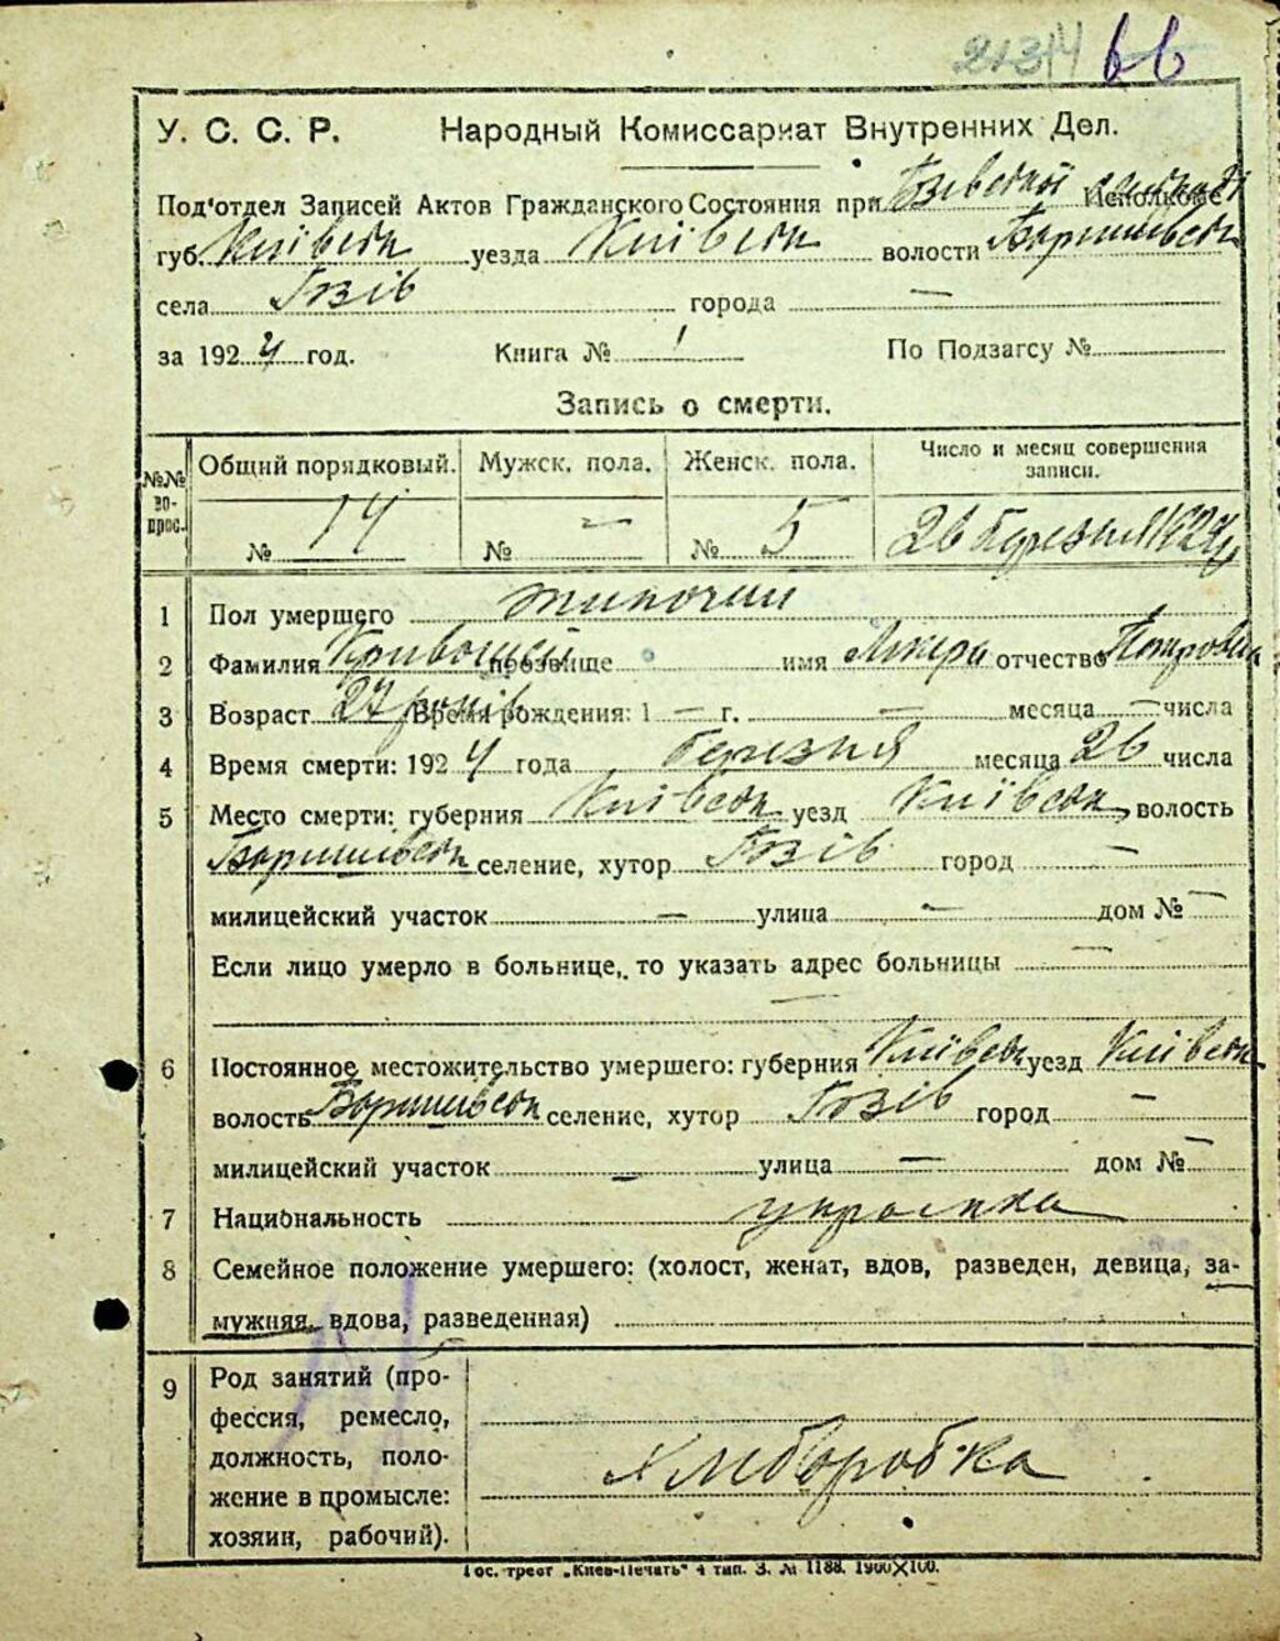 2134 66
У. С. С. Р. Народный Комиссариат Внутренних Дел.
Под'отдел Записей Актов Гражданского Состояния при Гзівській Исполкоме
губ. Київськ уезда Київськ волости Баришівськ
села Гозів города —
за 1924 год. Книга № 1 По Подзагсу №
Запись о смерти.
№№ вопрос. Общий порядковый. Мужск. пола. Женск. пола. Число и месяц совершения записи.
№ 14 № — № 5 26 березня 1924
1 Пол умершего жиночий
2 Фамилия Кривошей прозвище имя Лукера отчество Петровна
3 Возраст 27 років Время рождения: 1 — г. — месяца — числа
4 Время смерти: 1924 года березня месяца 26 числа
5 Место смерти: губерния Київськ уезд Київськ волость
Баришівськ селение, хутор Гозів город —
милицейский участок — улица — дом № —
Если лицо умерло в больнице, то указать адрес больницы —
—
6 Постоянное местожительство умершего: губерния Київськ уезд Київськ
волость Баришівськ селение, хутор Гозів город —
милицейский участок — улица — дом № —
7 Национальность украінка
8 Семейное положение умершего: (холост, женат, вдов, разведен, девица, за-
мужняя, вдова, разведенная)
9 Род занятий (про-
фессия, ремесло,
должность, поло-
жение в промысле:
хозяин, рабочий).
Хлиборобка
Гос. трест „Киев-Печать" 4 тип. З. № 1188. 1900×100.